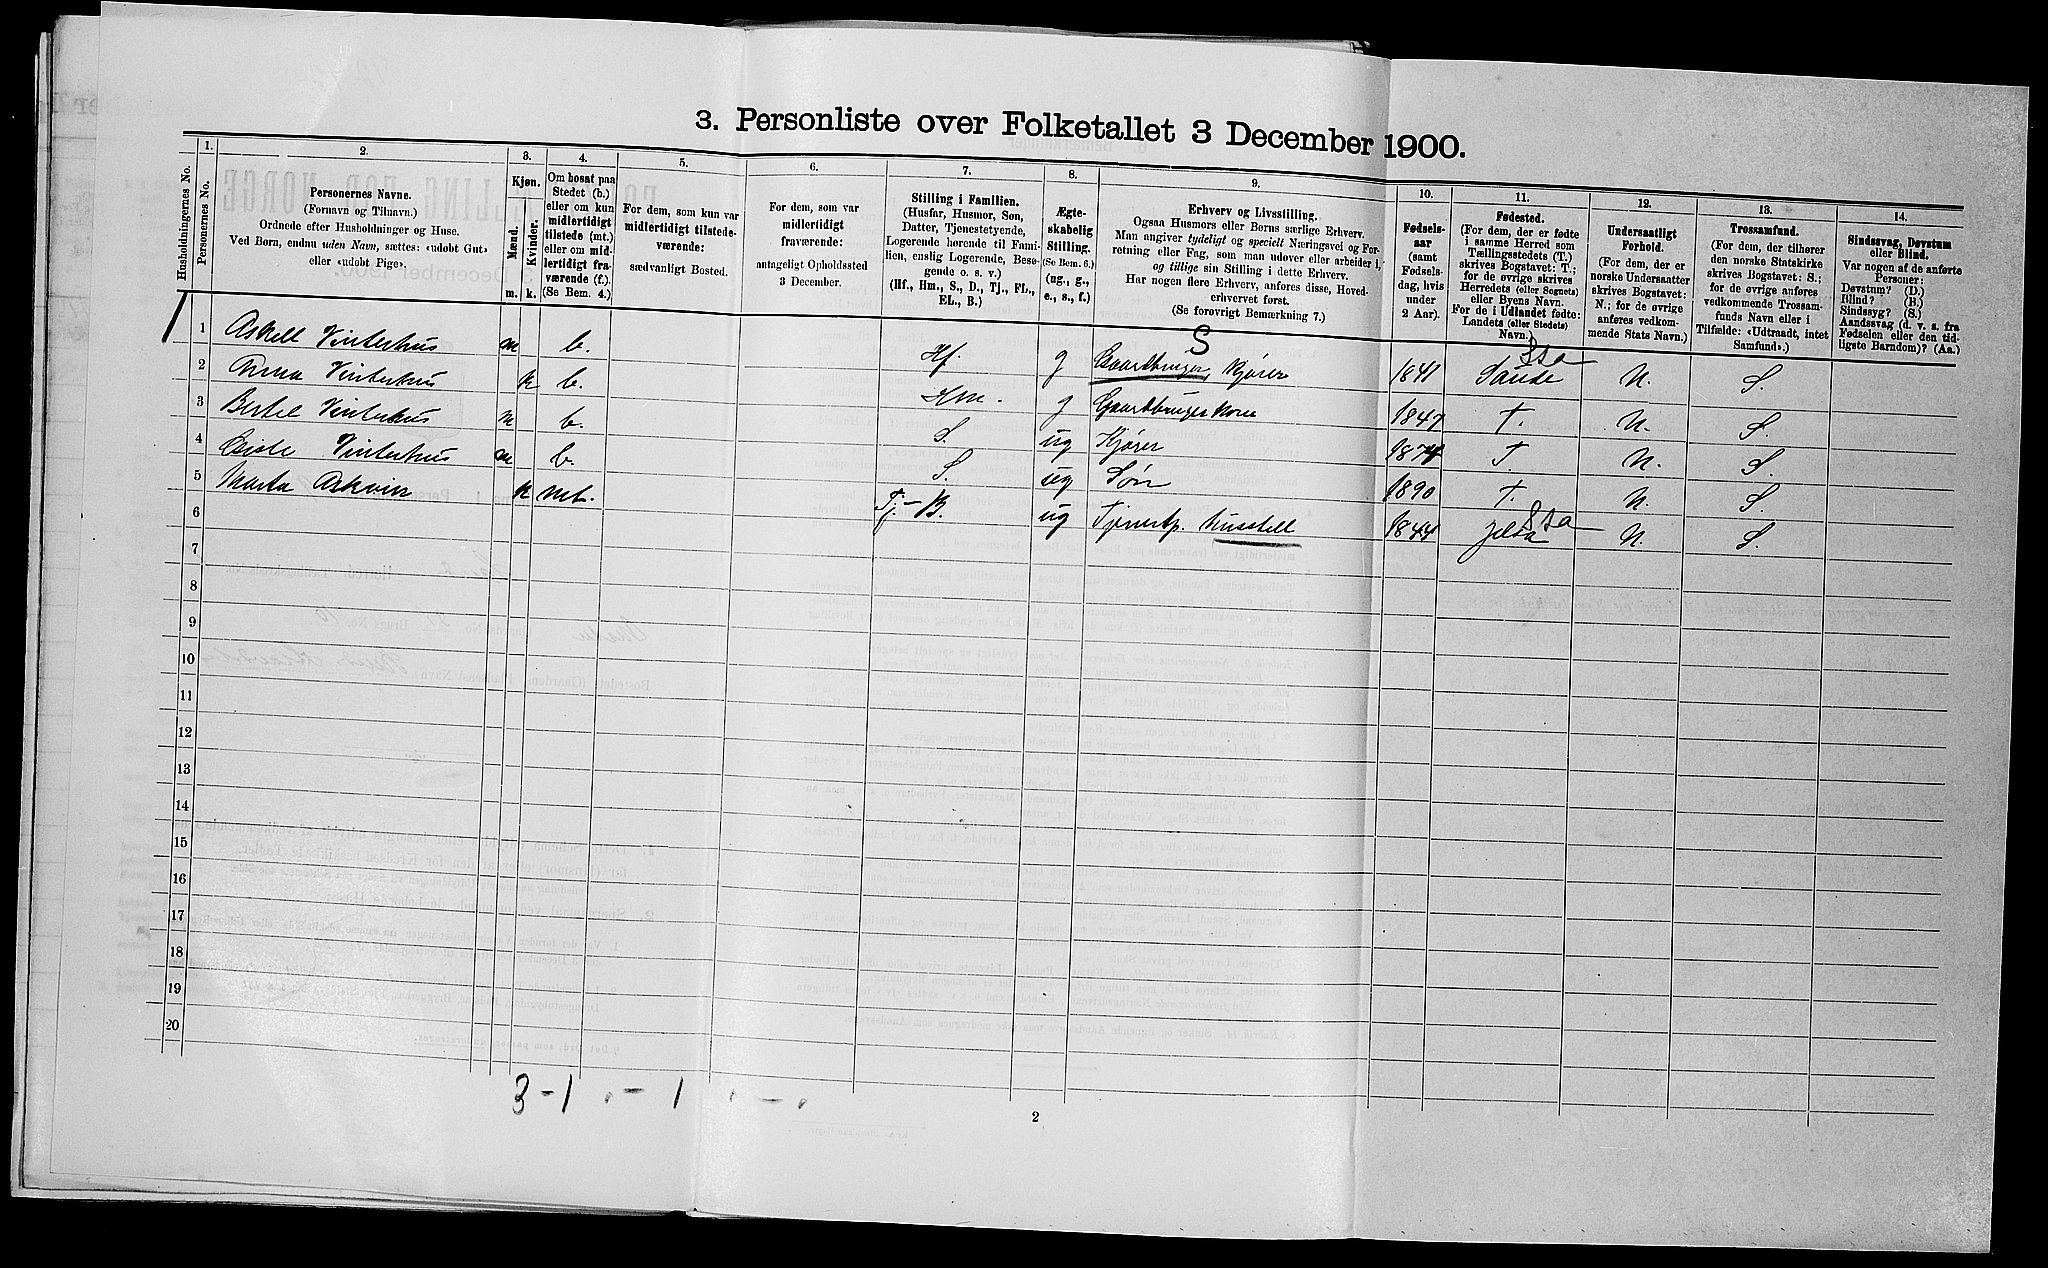 3. Personliste over Folketallet 3 December 1900.
Husholdningernes No.
1.
Personernes No.
2.
Personernes Navne.
(Fornavn og Tilnavn.)
Ordnede efter Husholdninger og Huse.
Ved Børn, endnu uden Navn, sættes: «udøbt Gut»
eller «udøbt Pige».
3.
Kjøn.
Mænd.
Kvinder.
m.
k.
4.
Om bosat paa
Stedet (b.)
eller om kun
midlertidigt
tilstede (mt.)
eller om mid-
lertidigt fra-
værende (f.).
(Se Bem. 4.)
5.
For dem, som kun var
midlertidigt tilstede-
værende:
sædvanligt Bosted.
6.
For dem, som var
midlertidigt
fraværende:
antageligt Opholdssted
3 December.
7.
Stilling i Familien.
(Husfar, Husmor, Søn,
Datter, Tjenestetyende,
Logerende hørende til Fami-
lien, enslig Logerende, Besø-
gende o. s. v.)
(Hf., Hm., S., D., Tj., FL.,
EL., B.)
8.
Ægte-
skabelig
Stilling.
(Se Bem. 6.)
(ug., g.,
e., s., f.)
9.
Erhverv og Livsstilling.
Ogsaa Husmors eller Børns særlige Erhverv.
Man angiver tydeligt og specielt Næringsvei og For-
retning eller Fag, som man udøver eller arbeider i,
og tillige sin Stilling i dette Erhverv.
Har nogen flere Erhverv, anføres disse, Hoved-
erhvervet først.
(Se forøvrigt Bemærkning 7.)
10.
Fødsels-
aar
(samt
Fødsels-
dag, hvis
under
2 Aar).
11.
Fødested.
(For dem, der er fødte
i samme Herred som
Tællingsstedets (T.)
skrives Bogstavet: T.;
for de øvrige skrives
Herredets (eller Sognets)
eller Byens Navn.
For de i Udlandet fødte:
Landets (eller Stedets)
Navn.)
12.
Undersaatligt
Forhold.
(For dem, der er
norske Undersaatter
skrives Bogstavet:
N.; for de øvrige
anføres vedkom-
mende Stats Navn.)
13.
Trossamfund.
(For dem, der tilhører
den norske Statskirke
skrives Bogstavet: S.;
for de øvrige anføres
vedkommende Trossam-
funds Navn eller i
Tilfælde: «Udtraadt, intet
Samfund».)
14.
Sindssvag, Døvstum
eller Blind.
Var nogen af de anførte
Personer:
Døvstum? (D.)
Blind? (B.)
Sindssyg? (S.)
Aandssvag (d. v. s. fra
Fødselen eller den tid-
ligste Barndom)? (Aa.)
1 1 Askell Vinterhus m b. Hf. g S Gaardbruger, Kjører 1841 Sande Sta N. S.
2 Anna Vinterhus k b. Hm. g Gaardbrugerkone 1847 T. N. S.
3 Bertel Vinterhus m b. S. ug Kjører 1874 T. N. S.
4 Vinterhus m b. S. ug Søn 1890 T. N. S.
5 Marta Askvin k mt. Tj.- B. ug Tjenestp. husstell 1844 Jelsa Sta N. S.
6
7
8
9
10
11
12
13
14
15
16
17
18
19
20
3-1 . - 1 . - .
2